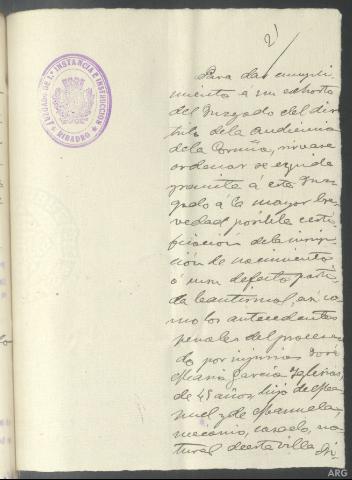 2
JUZGADO DE 1ª INSTANCIA E INSTRUCCION
RIBADEO
Para dar cumpli-
miento a un exhorto
del Juzgado del dis-
trito de la Audiencia
de la Coruña, sirvase
ordenar se expida
y remita á este Juz-
gado á la mayor bre-
vedad posible certi-
ficación de la inscrip-
ción de nacimiento
ó en su defecto parti-
da bautismal, asi co-
mo los antecedentes
penales del procesa-
do por injurias José
Maria Garcia Iglesias,
de 45 años, hijo de Ma-
nuel y de Manuela,
mecanico, casado, na-
tural de esta villa
ARG